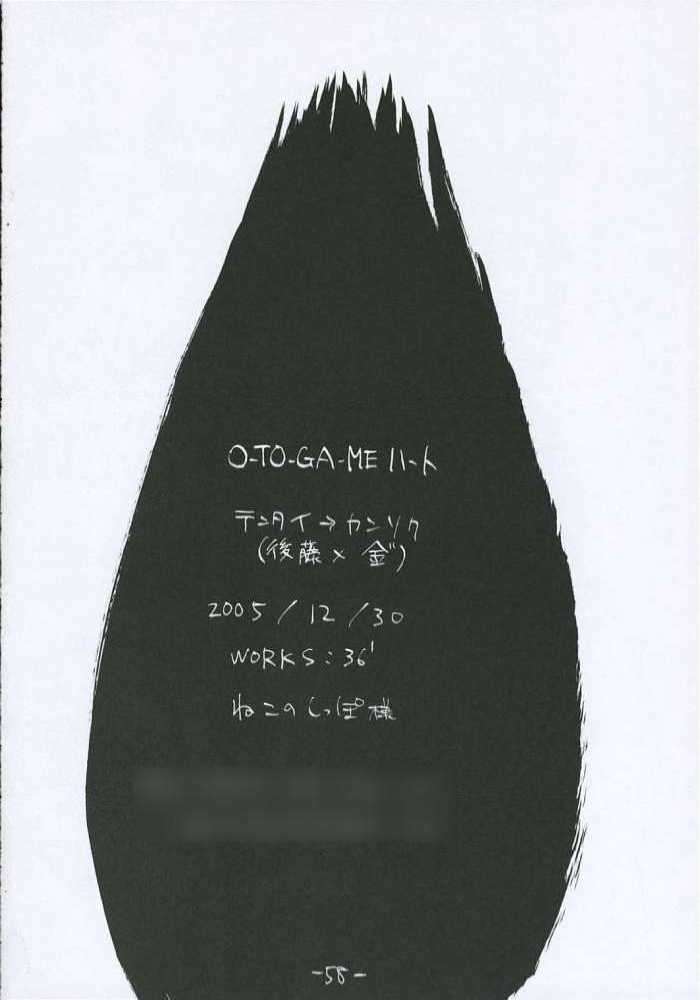 O-TO-GA-ME ハート
テンタイ→カンソク
(後藤×金゛)
2005/12/30
WORKS:36'
ねこのしっぽ様
-58-